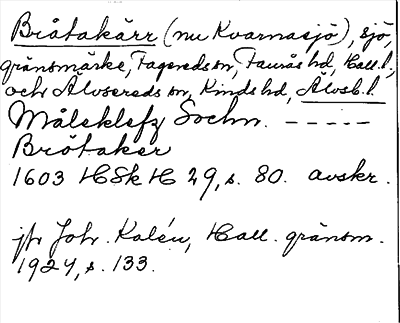 Bråtakärr (nu Kvarnasjö), sjö,
gränsmärke, Fagereds sn, Faurås hd, Hall. l.,
och Älvsereds sn, Kinds hd, Älvsb. l.
Måleklefz Sochn. - - - - -
Bråtaker
1603 HSk H 29, s. 80. avskr.
jfr Joh. Kalén, Hall. gränsm.
1924, s. 133.